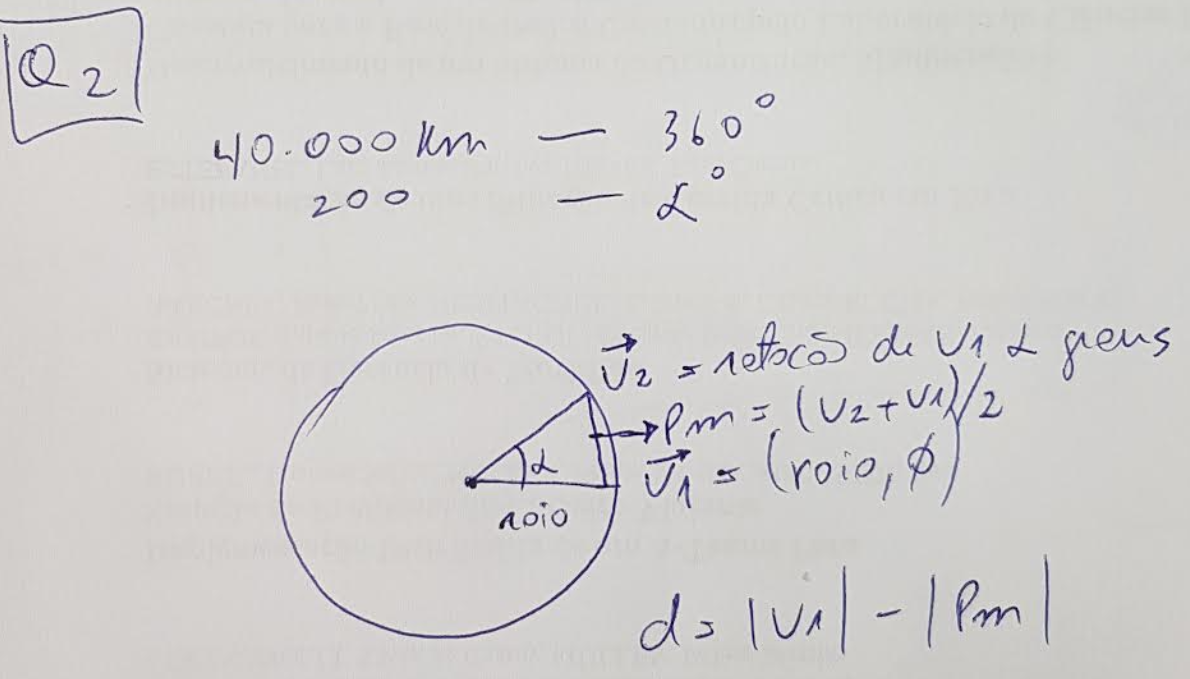 Q2
40.000 Km — 360°
200 — α°
V2 = rotação de V1 α graus
Pm = (V2+V1)/2
V1 = (raio, ϕ)
α
raio
d = |V1| - |Pm|